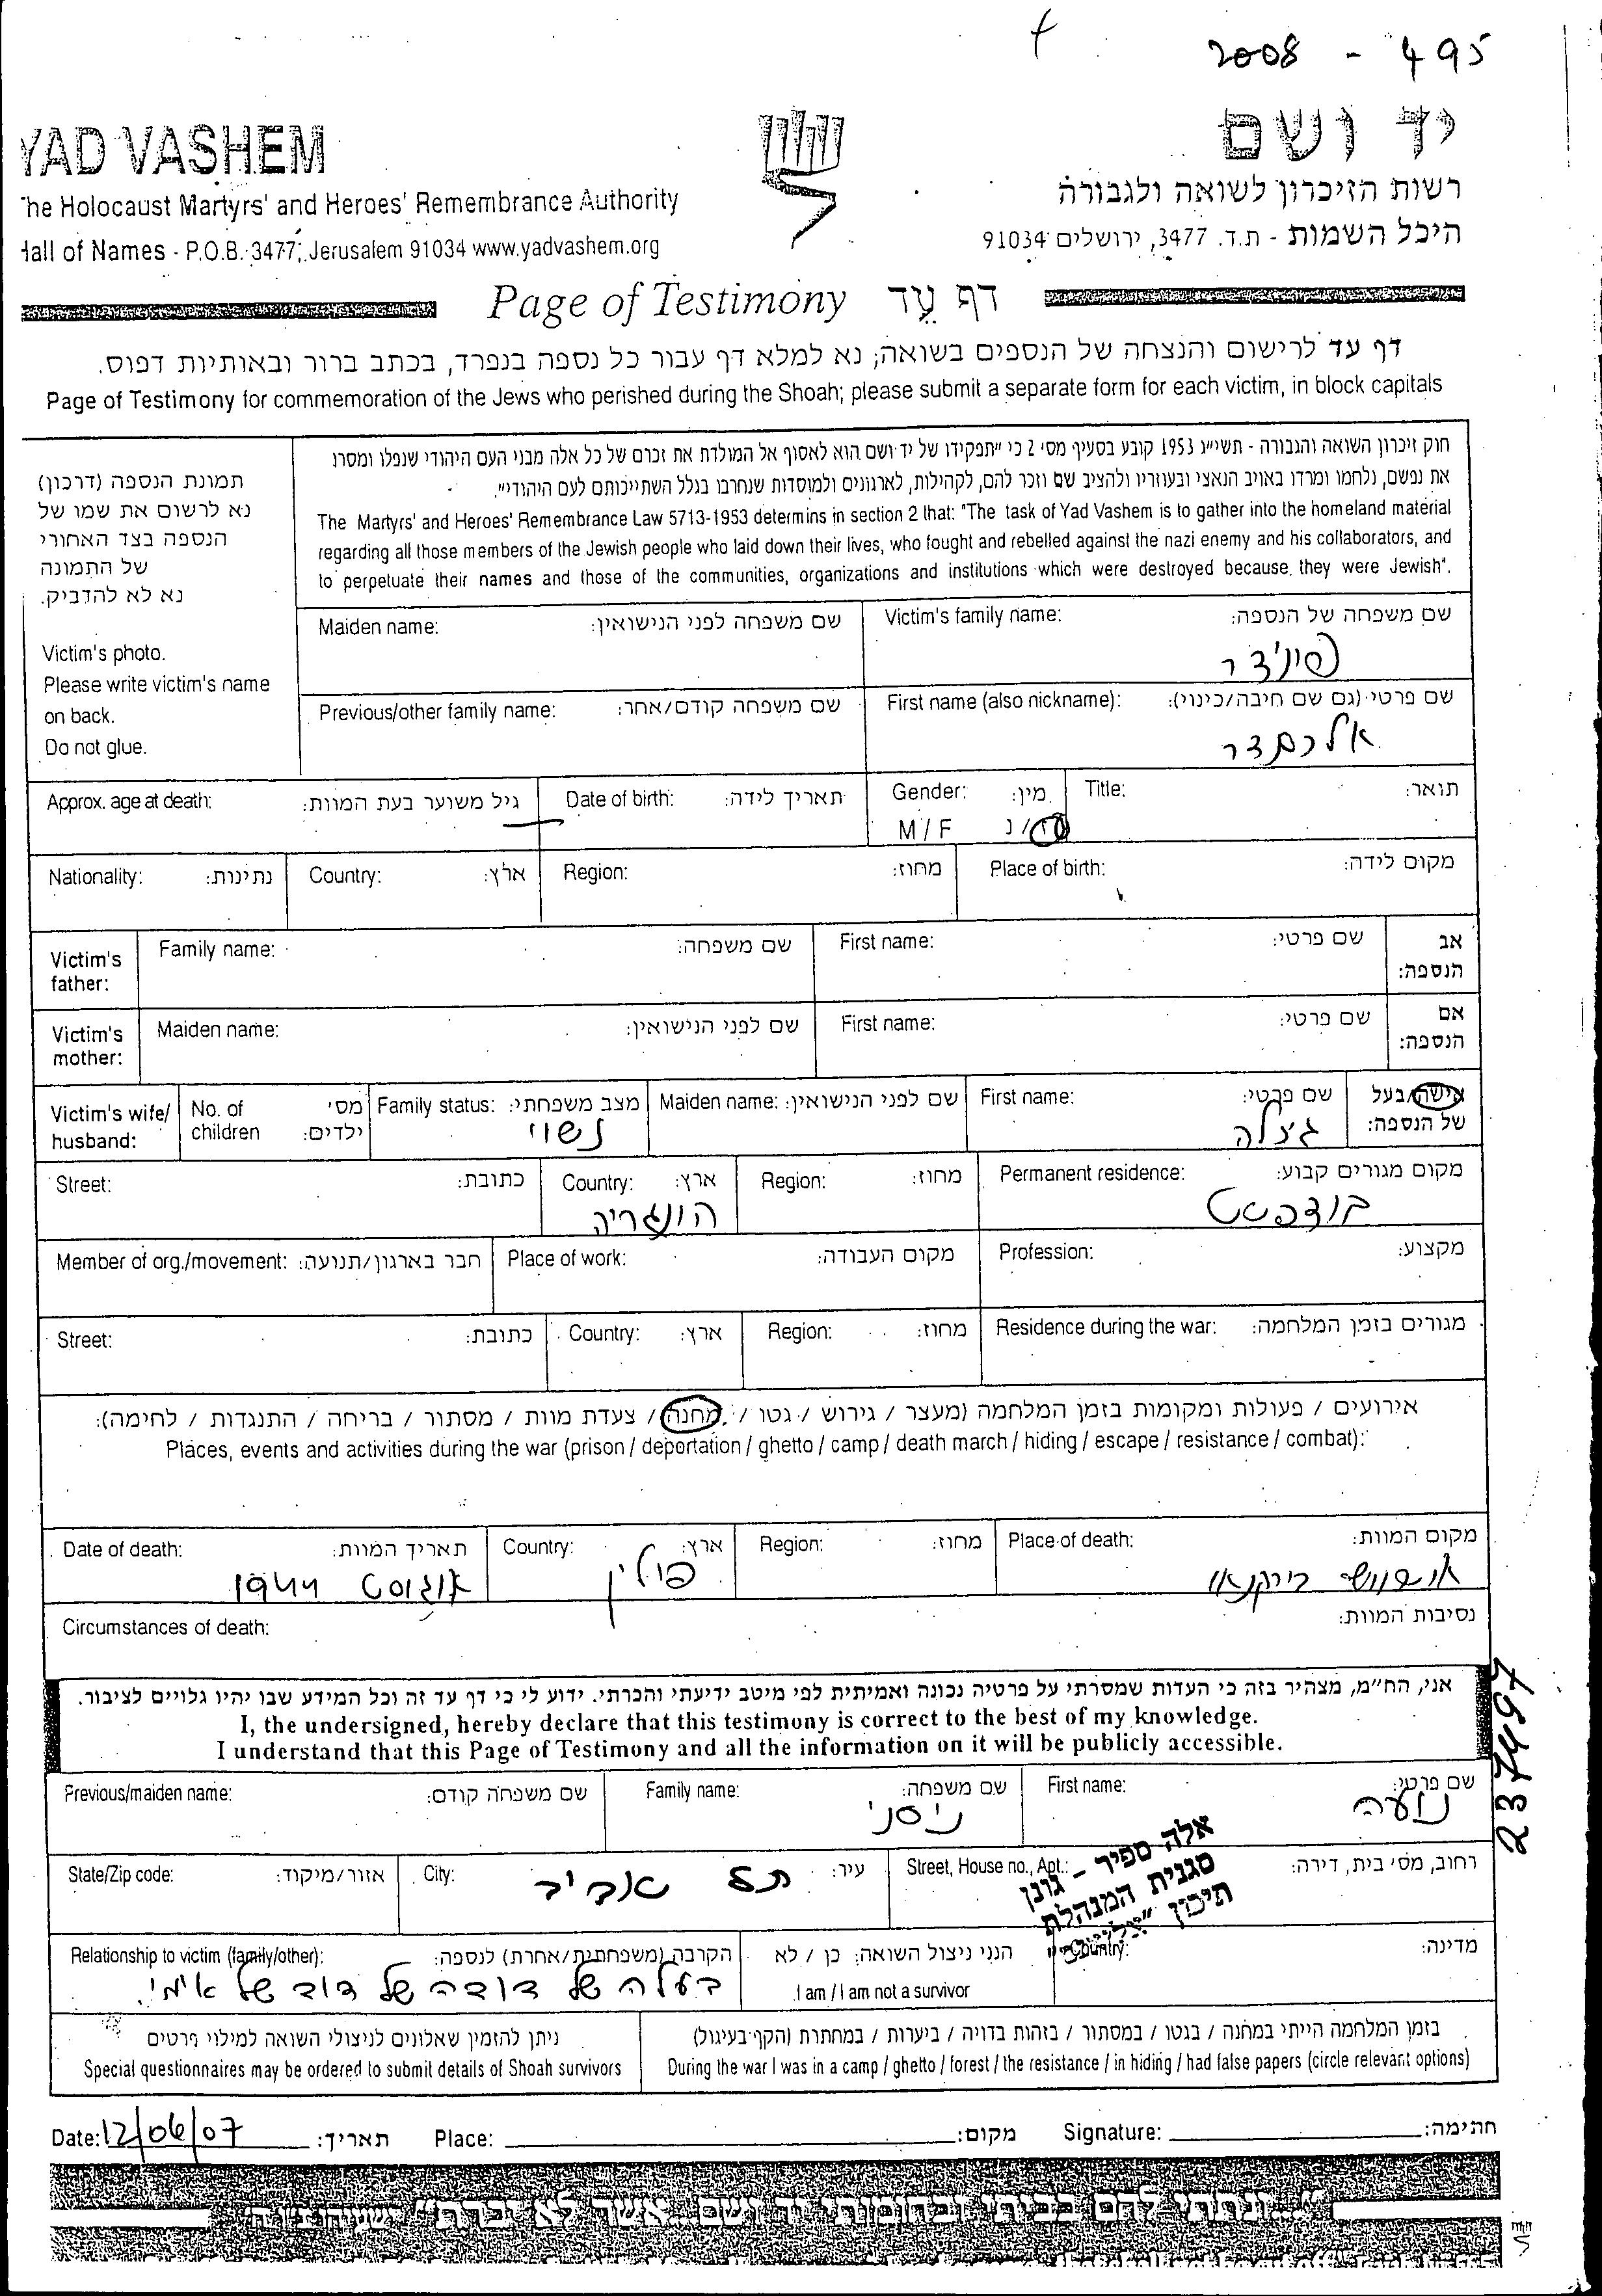 2008 - 495
YAD VASHEM
יד ושם
The Holocaust Martyrs' and Heroes' Remembrance Authority
רשות הזיכרון לשואה ולגבורה
Hall of Names - P.O.B. 3477, Jerusalem 91034 www.yadvashem.org
היכל השמות - ת.ד. 3477, ירושלים 91034
Page of Testimony דף עֵד
דף עד לרישום והנצחה של הנספים בשואה; נא למלא דף עבור כל נספה בנפרד, בכתב ברור ובאותיות דפוס.
Page of Testimony for commemoration of the Jews who perished during the Shoah; please submit a separate form for each victim, in block capitals
חוק זיכרון השואה והגבורה - תשי"ג 1953 קובע בסעיף מס' 2 כי "תפקידו של יד ושם הוא לאסוף אל המולדת את זכרם של כל אלה מבני העם היהודי שנפלו ומסרו
את נפשם, נלחמו ומרדו באויב הנאצי ובעוזריו ולהציב שם וזכר להם, לקהילות, לארגונים ולמוסדות שנחרבו בגלל השתייכותם לעם היהודי".
The Martyrs' and Heroes' Remembrance Law 5713-1953 determins in section 2 that: "The task of Yad Vashem is to gather into the homeland material
regarding all those members of the Jewish people who laid down their lives, who fought and rebelled against the nazi enemy and his collaborators, and
to perpetuate their names and those of the communities, organizations and institutions which were destroyed because they were Jewish".
תמונת הנספה (דרכון)
נא לרשום את שמו של
הנספה בצד האחורי
של התמונה
נא לא להדביק.
Victim's photo.
Please write victim's name
on back.
Do not glue.
Victim's family name: שם משפחה של הנספה:
Maiden name: שם משפחה לפני הנישואין:
First name (also nickname): שם פרטי (גם שם חיבה/כינוי):
אלכסנדר
Previous/other family name: שם משפחה קודם/אחר:
Title: תואר:
Gender: מין:
M / F ז / נ
Date of birth: תאריך לידה:
Approx. age at death: גיל משוער בעת המוות:
Place of birth: מקום לידה:
Region: מחוז:
Country: ארץ:
Nationality: נתינות:
Victim's father: אב הנספה:
First name: שם פרטי:
Family name: שם משפחה:
Victim's mother: אם הנספה:
First name: שם פרטי:
Maiden name: שם לפני הנישואין:
Victim's wife/husband: אישה/בעל של הנספה:
First name: שם פרטי:
גיזלה
Maiden name: שם לפני הנישואין:
Family status: מצב משפחתי:
נשוי
No. of children מס' ילדים:
Permanent residence: מקום מגורים קבוע:
בודפשט
Region: מחוז:
Country: ארץ:
הונגריה
Street: כתובת:
Profession: מקצוע:
Place of work: מקום העבודה:
Member of org./movement: חבר בארגון/תנועה:
Residence during the war: מגורים בזמן המלחמה:
Region: מחוז:
Country: ארץ:
Street: כתובת:
אירועים / פעולות ומקומות בזמן המלחמה (מעצר / גירוש / גטו / מחנה / צעדת מוות / מסתור / בריחה / התנגדות / לחימה):
Places, events and activities during the war (prison / deportation / ghetto / camp / death march / hiding / escape / resistance / combat):
Place of death: מקום המוות:
אושוויץ בירקנאו
Region: מחוז:
Country: ארץ:
פולין
Date of death: תאריך המוות:
אוגוסט 1944
Circumstances of death: נסיבות המוות:
אני, הח"מ, מצהיר בזה כי העדות שמסרתי על פרטיה נכונה ואמיתית לפי מיטב ידיעתי והכרתי. ידוע לי כי דף עד זה וכל המידע שבו יהיו גלויים לציבור.
I, the undersigned, hereby declare that this testimony is correct to the best of my knowledge.
I understand that this Page of Testimony and all the information on it will be publicly accessible.
237497
First name: שם פרטי:
נועה
Family name: שם משפחה:
ניסני
Previous/maiden name: שם משפחה קודם:
Street, House no., Apt.: רחוב, מס' בית, דירה:
אלה ספיר - גונן
סגנית המנהלת
תיכון
City: עיר:
תל אביב
State/Zip code: אזור/מיקוד:
Country: מדינה:
הנני ניצול השואה: כן / לא
I am / I am not a survivor
Relationship to victim (family/other): הקרבה (משפחתית/אחרת) לנספה:
בעלה של דודה של דוד של אימי.
בזמן המלחמה הייתי במחנה / בגטו / במסתור / בזהות בדויה / ביערות / במחתרת (הקף בעיגול)
During the war I was in a camp / ghetto / forest / the resistance / in hiding / had false papers (circle relevant options)
ניתן להזמין שאלונים לניצולי השואה למילוי פרטים
Special questionnaires may be ordered to submit details of Shoah survivors
Date: 12/06/07 תאריך:
Place: מקום:
Signature: חתימה:
"...ונתתי להם בביתי ובחומותי יד ושם...אשר לא יכרת" ישעיהו נ"ו ה'